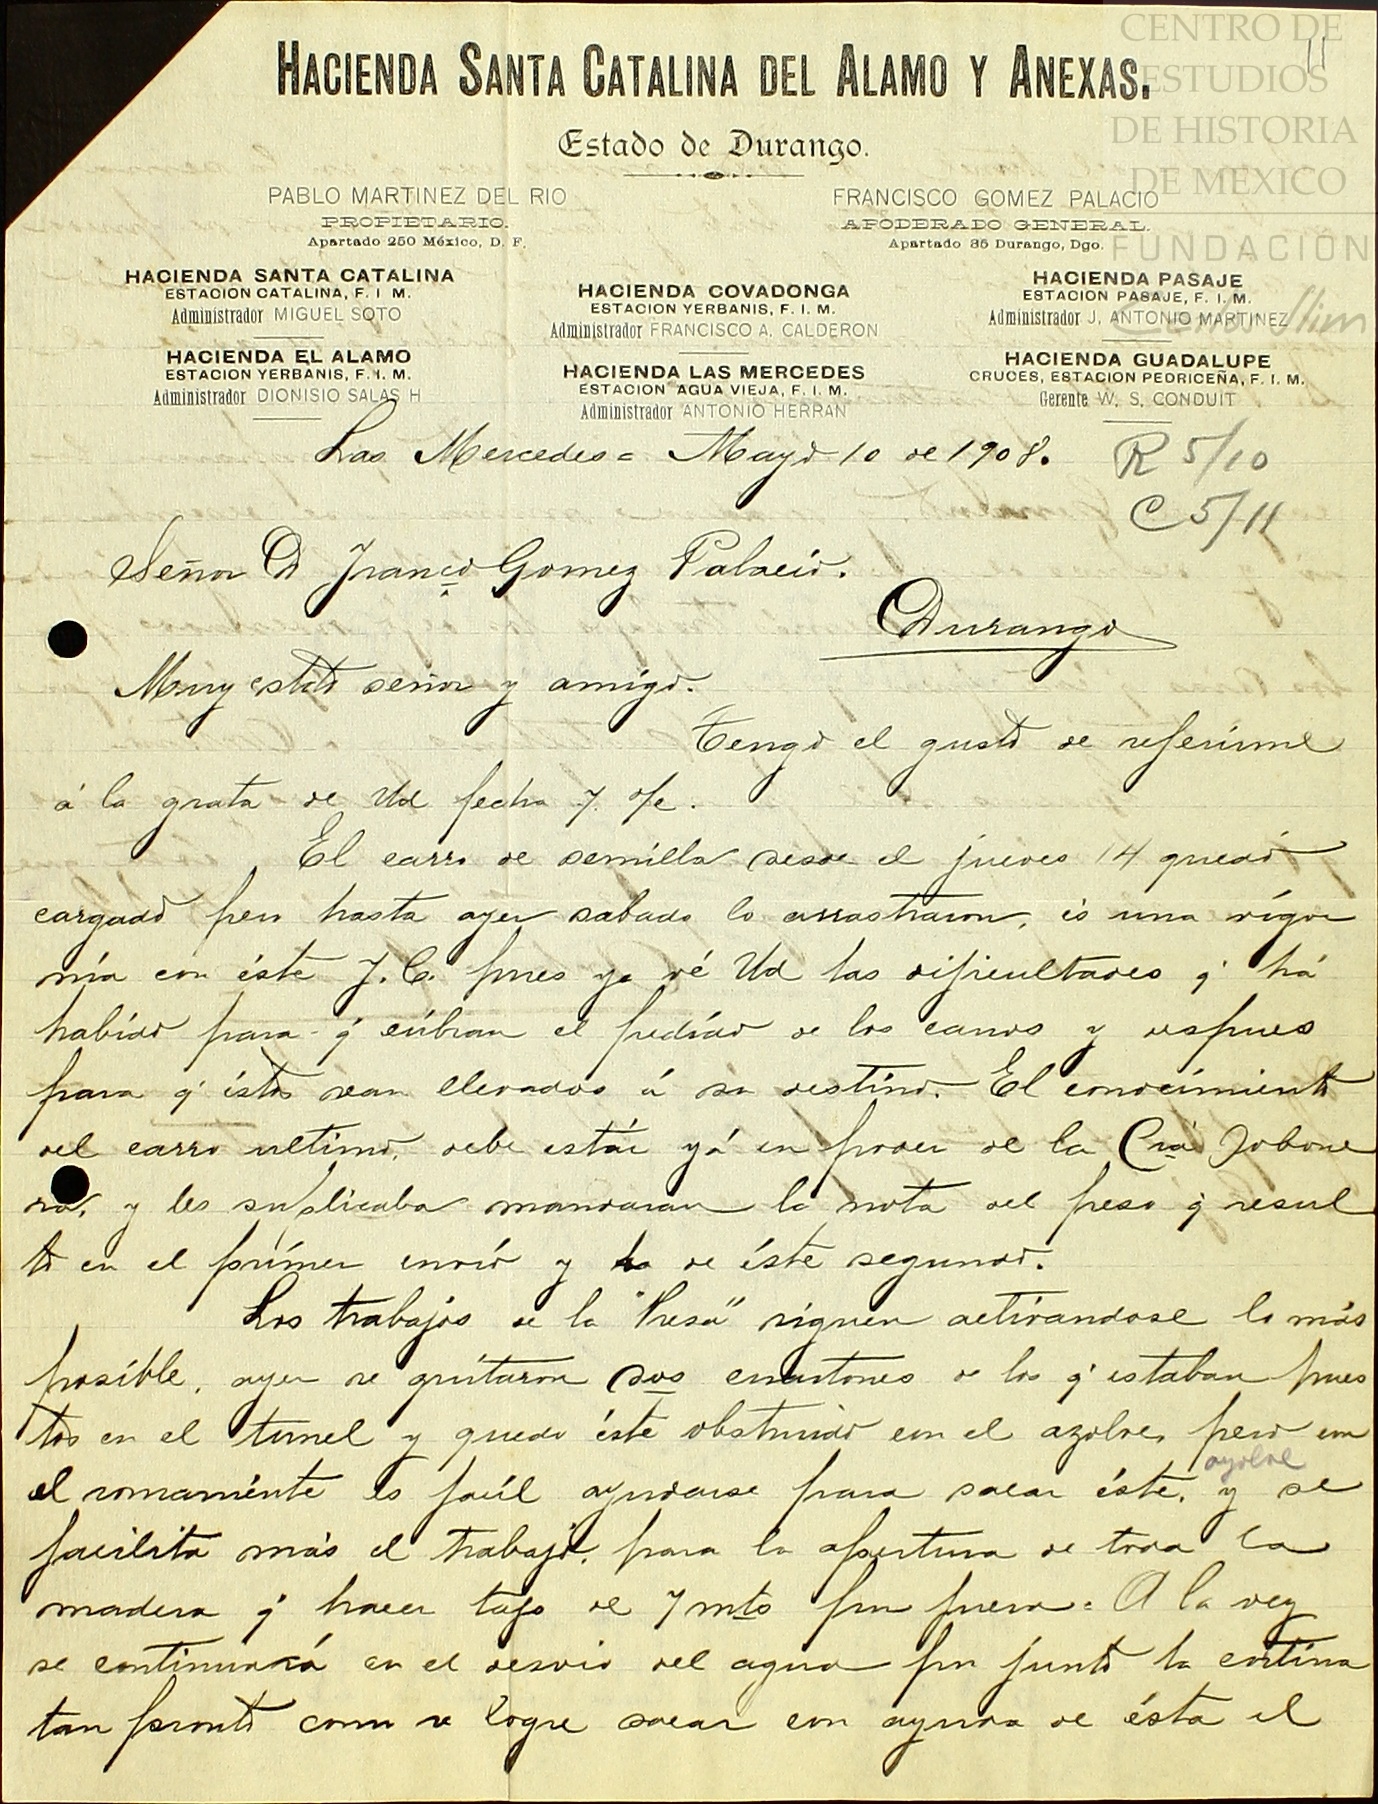 11
CENTRO DE
ESTUDIOS
DE HISTORIA
DE MEXICO
FUNDACIÓN
Carlos Slim
HACIENDA SANTA CATALINA DEL ALAMO Y ANEXAS.
Estado de Durango.
PABLO MARTINEZ DEL RIO
PROPIETARIO.
Apartado 250 México, D. F.
FRANCISCO GOMEZ PALACIO
APODERADO GENERAL.
Apartado 35 Durango, Dgo.
HACIENDA SANTA CATALINA
ESTACION CATALINA, F. I M.
Administrador MIGUEL SOTO
HACIENDA COVADONGA
ESTACION YERBANIS, F. I. M.
Administrador FRANCISCO A. CALDERON
HACIENDA PASAJE
ESTACION PASAJE, F. I. M.
Administrador J. ANTONIO MARTINEZ
HACIENDA EL ALAMO
ESTACION YERBANIS, F. I. M.
Administrador DIONISIO SALAS H
HACIENDA LAS MERCEDES
ESTACION AGUA VIEJA, F. I. M.
Administrador ANTONIO HERRAN
HACIENDA GUADALUPE
CRUCES, ESTACION PEDRICEÑA, F. I. M.
Gerente W. S. CONDUIT
Las Mercedes = Mayo 10 de 1908.
R 5/10
C 5/11
Señor D Franco Gomez Palacio.
Durango
Muy estdo señor y amigo.
Tengo el gusto de referirme
á la grata de Ud fecha 7. %c.
El carro de semilla desde el jueves 14 quedó
cargado pero hasta ayer sabado lo arrastraron, es una
con éste F.C. pues ya vé Ud las dificultades q' há
habido para q' cubran el pedido de los carros y despues
para q' éstos sean llevados á su destino. El conocimiento
del carro ultimo, debe estár yá en poder de la Cia Jabone
ra, y les suplicaba mandaran la nota del peso q' resul
tó en el primer envió y la de éste segundo.
Los trabajos de la "Presa" siguen activandose lo más
posible, ayer se quitaron dos cuartones de los q' estaban pues
tos en el tunel y quedo éste obstruido con el azolve, pero con
azolve
el remaniente es facil ayudarse para sacar éste, y se
facilita más el trabajo, para la apertura de toda la
madera q' hacer tajo de 7 mts por fuera. A la vez
se continuará en el desvio del agua por junto la cortina
tan pronto como se logre sacar con ayuda de ésta el